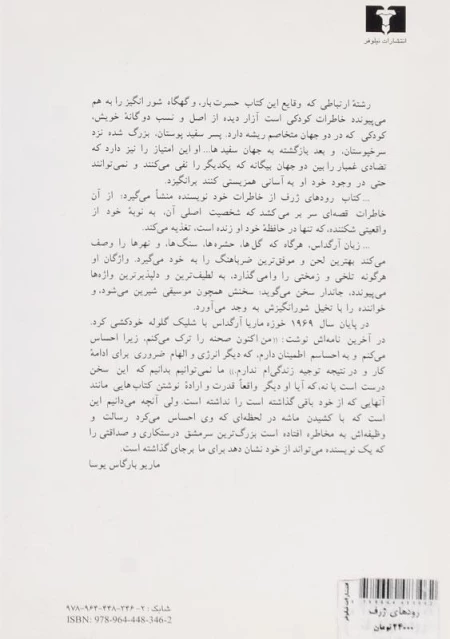 انتشارات نیلوفر
رشتهٔ ارتباطی که وقایع این کتاب حسرت‌بار، و گهگاه شورانگیز را به هم
می‌پیوندد خاطرات کودکی است آزار دیده از اصل و نسب دوگانهٔ خویش،
کودکی که در دو جهان متخاصم ریشه دارد. پسر سفید پوستان، بزرگ شده نزد
سرخپوستان، و بعد بازگشته به جهان سفیدها... او این امتیاز را نیز دارد که
تضادی غمبار را بین دو جهان بیگانه که یکدیگر را نفی می‌کنند و نمی‌توانند
حتی در وجود خود او به آسانی همزیستی کنند برانگیزد.
... کتاب رودهای ژرف از خاطرات خود نویسنده منشأ می‌گیرد: از آن
خاطرات قصه‌ای سر بر می‌کشد که شخصیت اصلی آن، به نوبهٔ خود از
واقعیتی شکننده، که تنها در حافظهٔ خود او زنده است، تغذیه می‌کند.
... زبان آرگداس، هرگاه که گل‌ها، حشره‌ها، سنگ‌ها، و نهرها را وصف
می‌کند بهترین لحن و موفق‌ترین ضرباهنگ را به خود می‌گیرد. واژگان او
هرگونه تلخی و زمختی را وامی‌گذارد، به لطیف‌ترین و دلپذیرترین واژه‌ها
می‌پیوندد، جاندار سخن می‌گوید؛ سخنش همچون موسیقی شیرین می‌شود، و
خواننده را با تخیل شورانگیزش به وجد می‌آورد.
در پایان سال ۱۹۶۹ خوزه ماریا آرگداس با شلیک گلوله خودکشی کرد.
در آخرین نامه‌اش نوشت: «من اکنون صحنه را ترک می‌کنم، زیرا احساس
می‌کنم و به احساسم اطمینان دارم، که دیگر انرژی و الهام ضروری برای ادامهٔ
کار و در نتیجه توجیه زندگی‌ام ندارم.» ما نمی‌توانیم بدانیم که این سخن
درست است یا نه، که آیا او دیگر واقعاً قدرت و ارادهٔ نوشتن کتاب‌هایی مانند
آنهایی که از خود باقی گذاشته است را نداشته است. ولی آنچه می‌دانیم این
است که با کشیدن ماشه در لحظه‌ای که وی احساس می‌کرد رسالت و
وظیفه‌اش به مخاطره افتاده است بزرگ‌ترین سرمشق درستکاری و صداقتی را
که یک نویسنده می‌تواند از خود نشان دهد برای ما برجای گذاشته است.
ماریو بارگاس یوسا
شابک: ۲-۳۴۶-۴۴۸-۹۶۴-۹۷۸
ISBN: 978-964-448-346-2
رودهای ژرف
۲۴۰۰۰ تومان